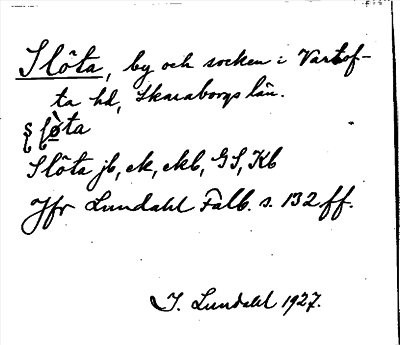 Slöta, by och socken i Vartof-
ta hd, Skaraborgs län.
Slöta jb, ek, ekb, GS, Kb
Jfr Lundahl Falb. s. 132 ff.
I. Lundahl 1927.